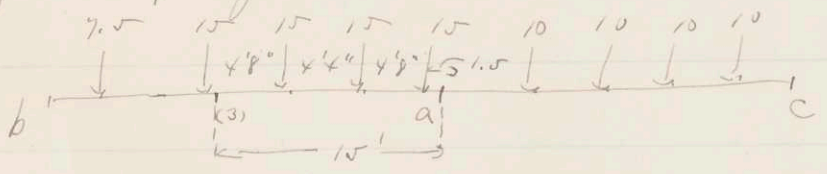 7.5 15 15 15 15 10 10 10 10
4'8" 4'4" 4'8" 1.5
b (3) a c
15'